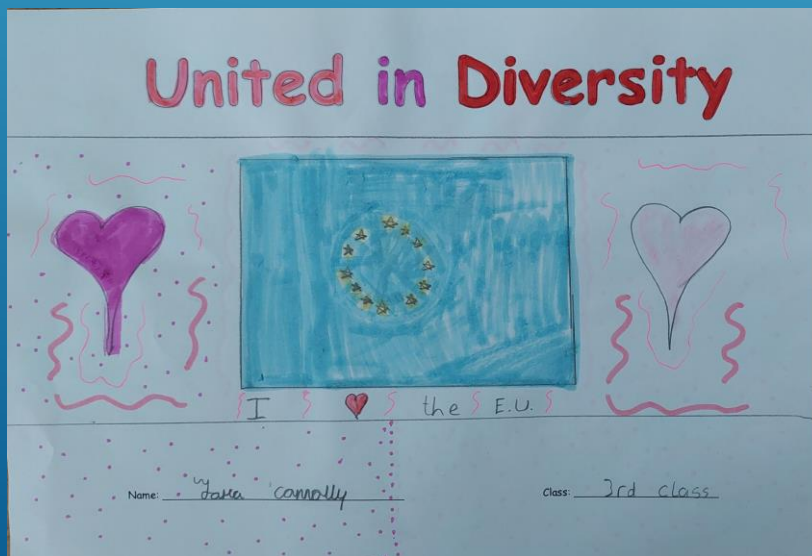 United in Diversity
I ❤ the E.U.
Name: Connolly
Class: 3rd class